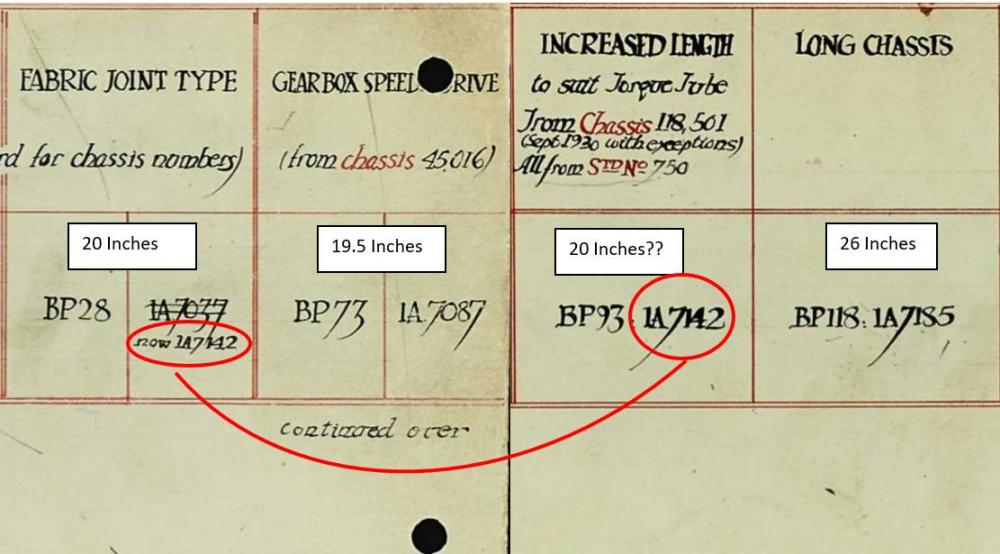 FABRIC JOINT TYPE
rd for chassis numbers)
GEARBOX SPEED RIVE
(from chassis 45,016)
INCREASED LENGTH
to suit Torque Tube
From Chassis 118,501
(Sept 1930 with exceptions)
All from STD No 750
LONG CHASSIS
20 Inches
19.5 Inches
20 Inches??
26 Inches
BP28
1A7037
now 1A7142
BP73
1A.7087
BP93. 1A7142
BP118: 1A7185
continued over